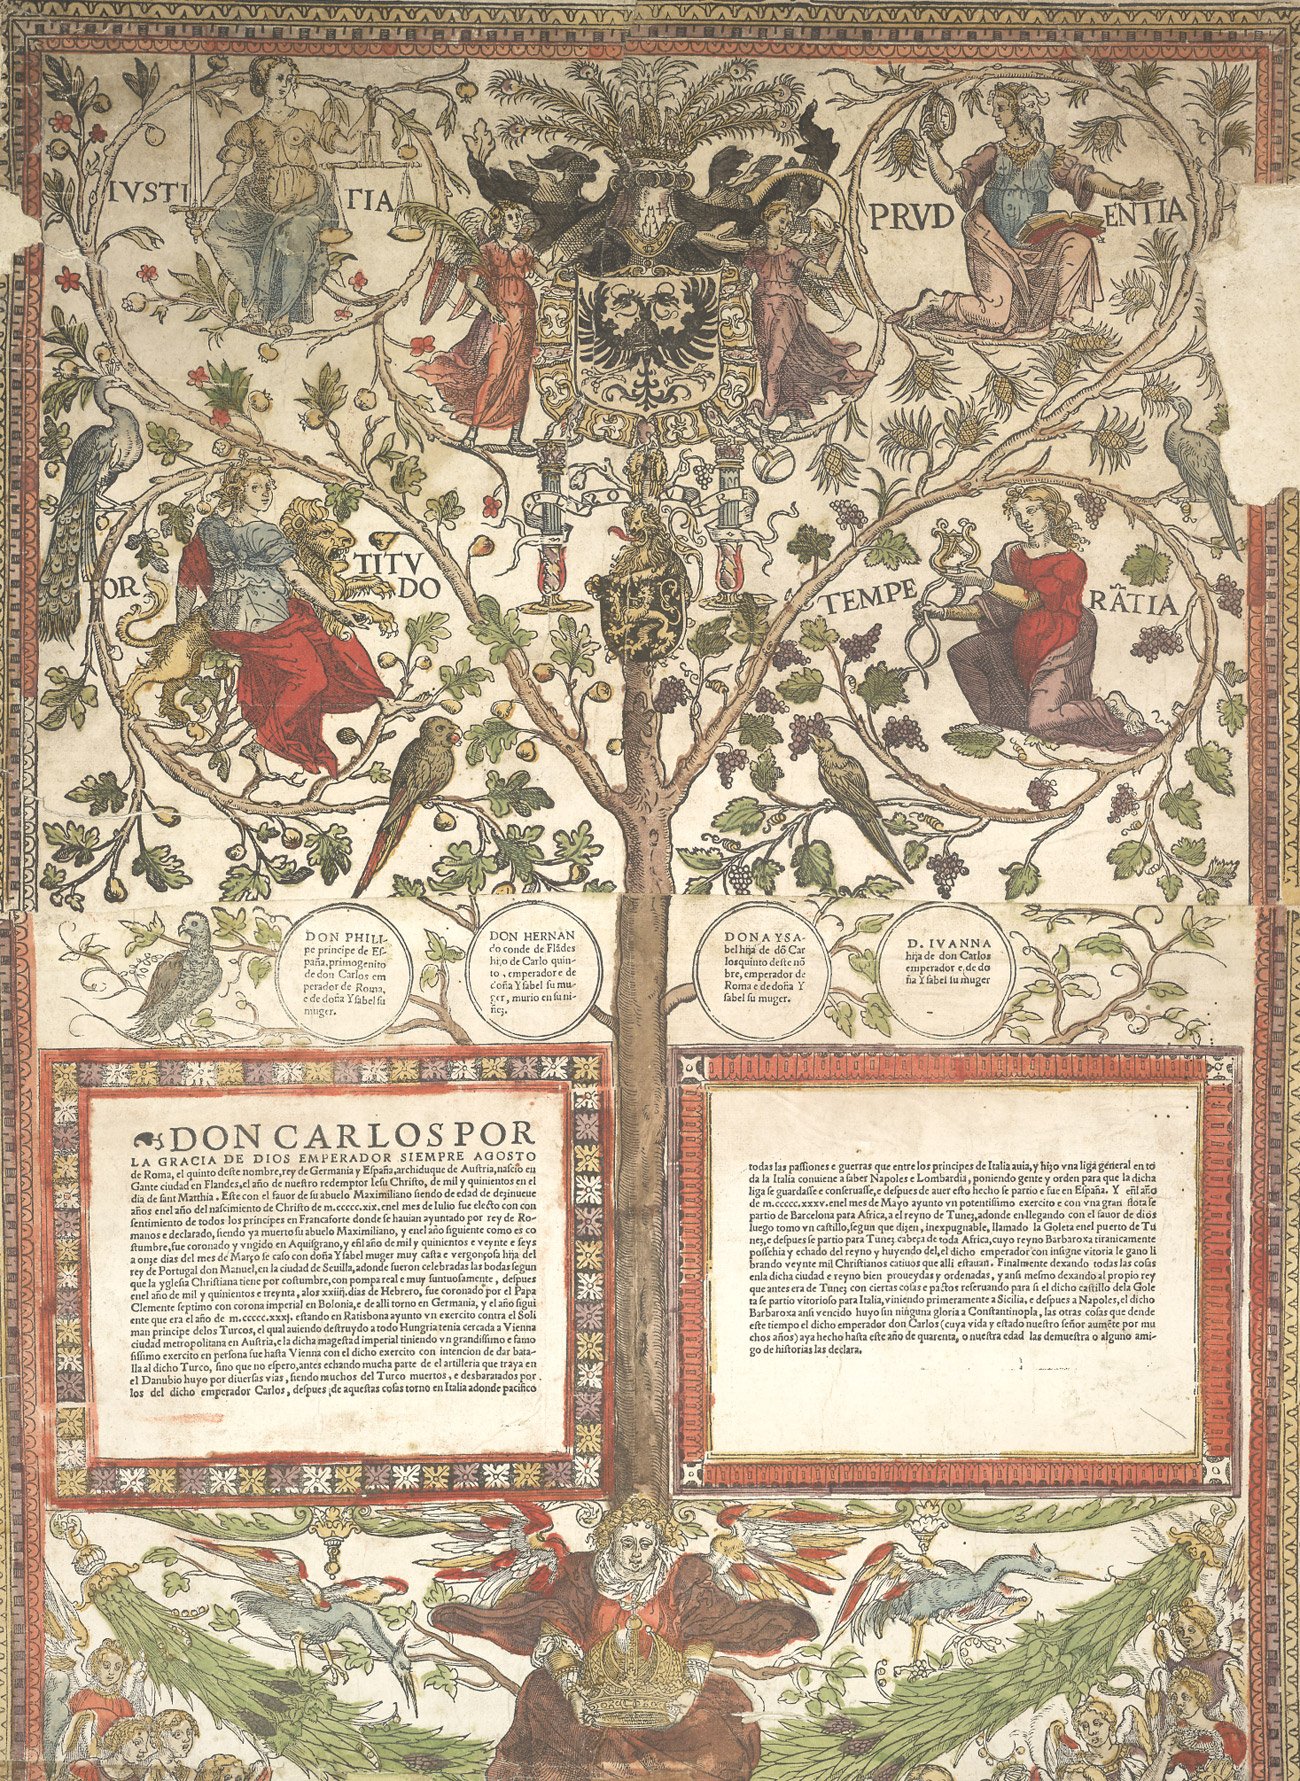 IVSTI TIA
PRVD ENTIA
FOR TITV
DO
TEMPE RÃTIA
DON PHILI-
pe principe de Es-
paña, primogenito
de don Carlos em
perador de Roma,
e de doña Ysabel su
muger.
DON HERNAN
do conde de Flãdes
hijo de Carlo quin-
to, emperador e de
doña Ysabel su mu-
ger, murio en su ni-
ñez.
DONA YSA-
bel hija de dõ Car
los quinto deste nõ
bre, emperador de
Roma e de doña Y
sabel su muger.
D. IVANNA
hija de don Carlos
emperador e de do
ña Ysabel su muger
DON CARLOS POR
LA GRACIA DE DIOS EMPERADOR SIEMPRE AGOSTO
de Roma, el quinto deste nombre, rey de Germania y España, archiduque de Austria, nascio en
Gante ciudad en Flandes, el año de nuestro redemptor Iesu Christo, de mil y quinientos en el
dia de sant Matthia. Este con el fauor de su abuelo Maximiliano siendo de edad de dezinueue
años en el año del nascimiento de Christo de m.ccccc.xix. en el mes de Iulio fue electo con con
sentimiento de todos los principes en Francaforte donde se hauian ayuntado por rey de Ro-
manos e declarado, siendo ya muerto su abuelo Maximiliano, y en el año siguiente como es co
stumbre, fue coronado y vngido en Aquisgrano, y eñl año de mil y quinientos e veynte e seys
a onze dias del mes de Março se caso con doña Ysabel muger muy casta e vergonçosa hija del
rey de Portugal don Manuel, en la ciudad de Seuilla, adonde fueron celebradas las bodas segun
que la yglesia Christiana tiene por costumbre, con pompa real e muy suntuosamente, despues
en el año de mil y quinientos e treynta, alos xxiiij. dias de Hebrero, fue coronado por el Papa
Clemente septimo con corona imperial en Bolonia, e de alli torno en Germania, y el año sigui
ente que era el año de m.ccccc.xxxj. estando en Ratisbona ayunto vn exercito contra el Soli
man principe delos Turcos, el qual auiendo destruydo a todo Hungria tenia cercada a Vienna
ciudad metropolitana en Austria, e la dicha magestad imperial tiniendo vn grandissimo e famo
sissimo exercito en persona fue hasta Vienna con el dicho exercito con intencion de dar bata-
lla al dicho Turco, sino que no espero, antes echando mucha parte de el artilleria que traya en
el Danubio huyo por diuersas vias, siendo muchos del Turco muertos, e desbaratados por
los del dicho emperador Carlos, despues de aquestas cosas torno en Italia adonde pacifico
todas las passiones e guerras que entre los principes de Italia auia, y hizo vna liga general en to
da la Italia conuiene a saber Napoles e Lombardia, poniendo gente y orden para que la dicha
liga se guardasse e conseruasse, e despues de auer esto hecho se partio e fue en España. Y eñl año
de m.ccccc.xxxv. en el mes de Mayo ayunto vn potentissimo exercito e con vna gran flota se
partio de Barcelona para Africa, a el reyno de Tunez, adonde en llegando con el fauor de dios
luego tomo vn castillo, segun que dizen, inexpugnable, llamado la Goleta en el puerto de Tu
nez, e despues se partio para Tunez cabeça de toda Africa, cuyo reyno Barbaroxa tiranicamente
possehia y echado del reyno y huyendo del, el dicho emperador con insigne vitoria le gano li
brando veynte mil Christianos catiuos que alli estauan. Finalmente dexando todas las cosas
en la dicha ciudad e reyno bien proueydas y ordenadas, y ansi mesmo dexando al propio rey
que antes era de Tunez con ciertas cosas e pactos reseruando para si el dicho castillo dela Gole
ta se partio vitorioso para Italia, viniendo primeramente a Sicilia, e despues a Napoles, el dicho
Barbaroxa ansi vencido huyo sin ninguna gloria a Constantinopla, las otras cosas que dende
este tiempo el dicho emperador don Carlos (cuya vida y estado nuestro señor aumẽte por mu
chos años) aya hecho hasta este año de quarenta, o nuestra edad las demuestra o alguno ami-
go de historias las declara.